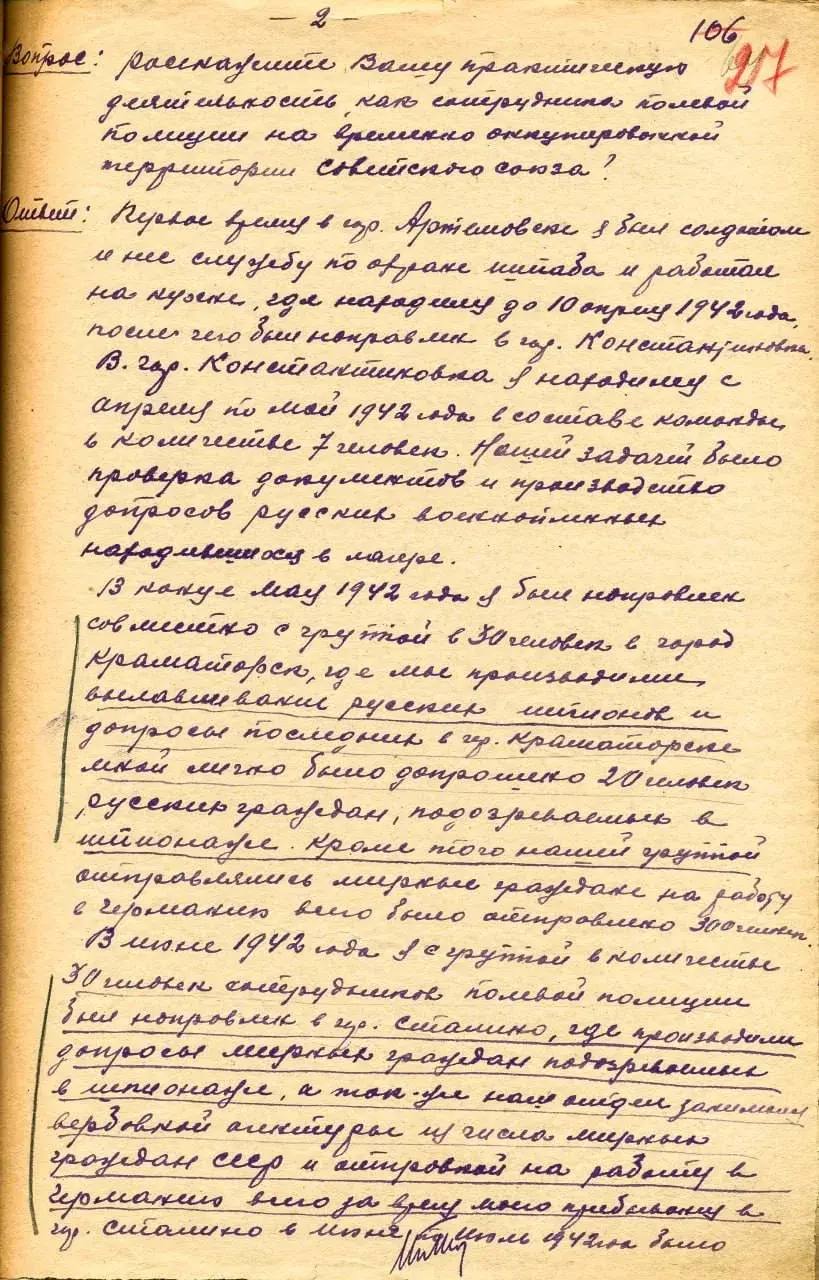 - 2 -
106
217
Вопрос: расскажите Вашу практическую
деятельность, как сотрудника полевой
полиции на временно оккупированной
территории Советского союза?
Ответ: Первое время в гор. Артемовске я был солдатом
и нес службу по охране штаба и работал
на кухне, где находился до 10 апреля 1942 года,
после чего был направлен в гор. Константиновка.
В гор. Константиновка я находился с
апреля по май 1942 года в составе команды,
в количестве 7 человек. Нашей задачей было
проверка документов и производство
допросов русских военнопленных
находившихся в лагере.
В конце мая 1942 года я был направлен
совместно с группой в 30 человек в город
Краматорск, где мы производили
вылавливание русских шпионов и
допросы последних в гор. Краматорске
мной лично было допрошено 20 человек
русских граждан, подозреваемых в
шпионаже. Кроме того нашей группой
отправлялись мирные граждане на работу
в Германию всего было отправлено 300 человек.
В июне 1942 года я с группой в количестве
30 человек сотрудников полевой полиции
был направлен в гор. Сталино, где производили
допросы мирных граждан подозреваемых
в шпионаже, а так-же наш отдел занимался
вербовкой агентуры из числа мирных
граждан СССР и отправкой на работу в
Германию всего за время моего пребывания в
гор. Сталино в июне по июль 1942 года было